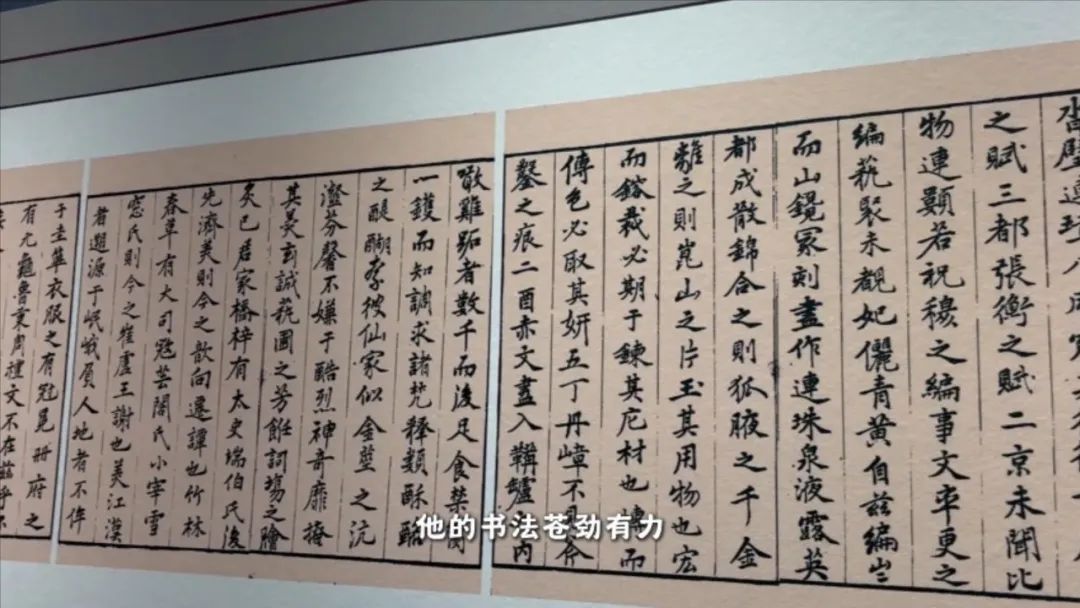 之賦三都張衡之賦二京未聞比
物連類若祝穆之編事文率更之
編藝聚未覩妃儷青黃自茲編出
而山鏡冢刻盡作連珠泉液露英
都成散錦合之則狐腋之千金
離之則崑山之片玉其用物也宏
而鎔裁必期于鍊其庀材也專而
傅色必取其妍五丁丹嶂不見斧
鑿之痕二酉赤文盡入鞴鑪內
噉雞跖者數千而後足食禁
一鑊而知調求諸梵釋類酥酪
之醍醐索彼仙家似金莖之沆
瀣芬馨不嫌于酷烈神奇靡掩
其昊玄誠藝圃之芳飪詞場之膾
炙已君家橋梓有太史瑞伯氏後
先濟美則今之歆向遷譚也竹林
春草有大司寇芸閣氏小宰雪
窓氏則今之崔盧王謝也美江漢
者遡源于岷峨 人地者不侔
于圭蓽衣服之有冠冕冊府之
有元龜魯秉周禮文不在茲乎
他的书法苍劲有力